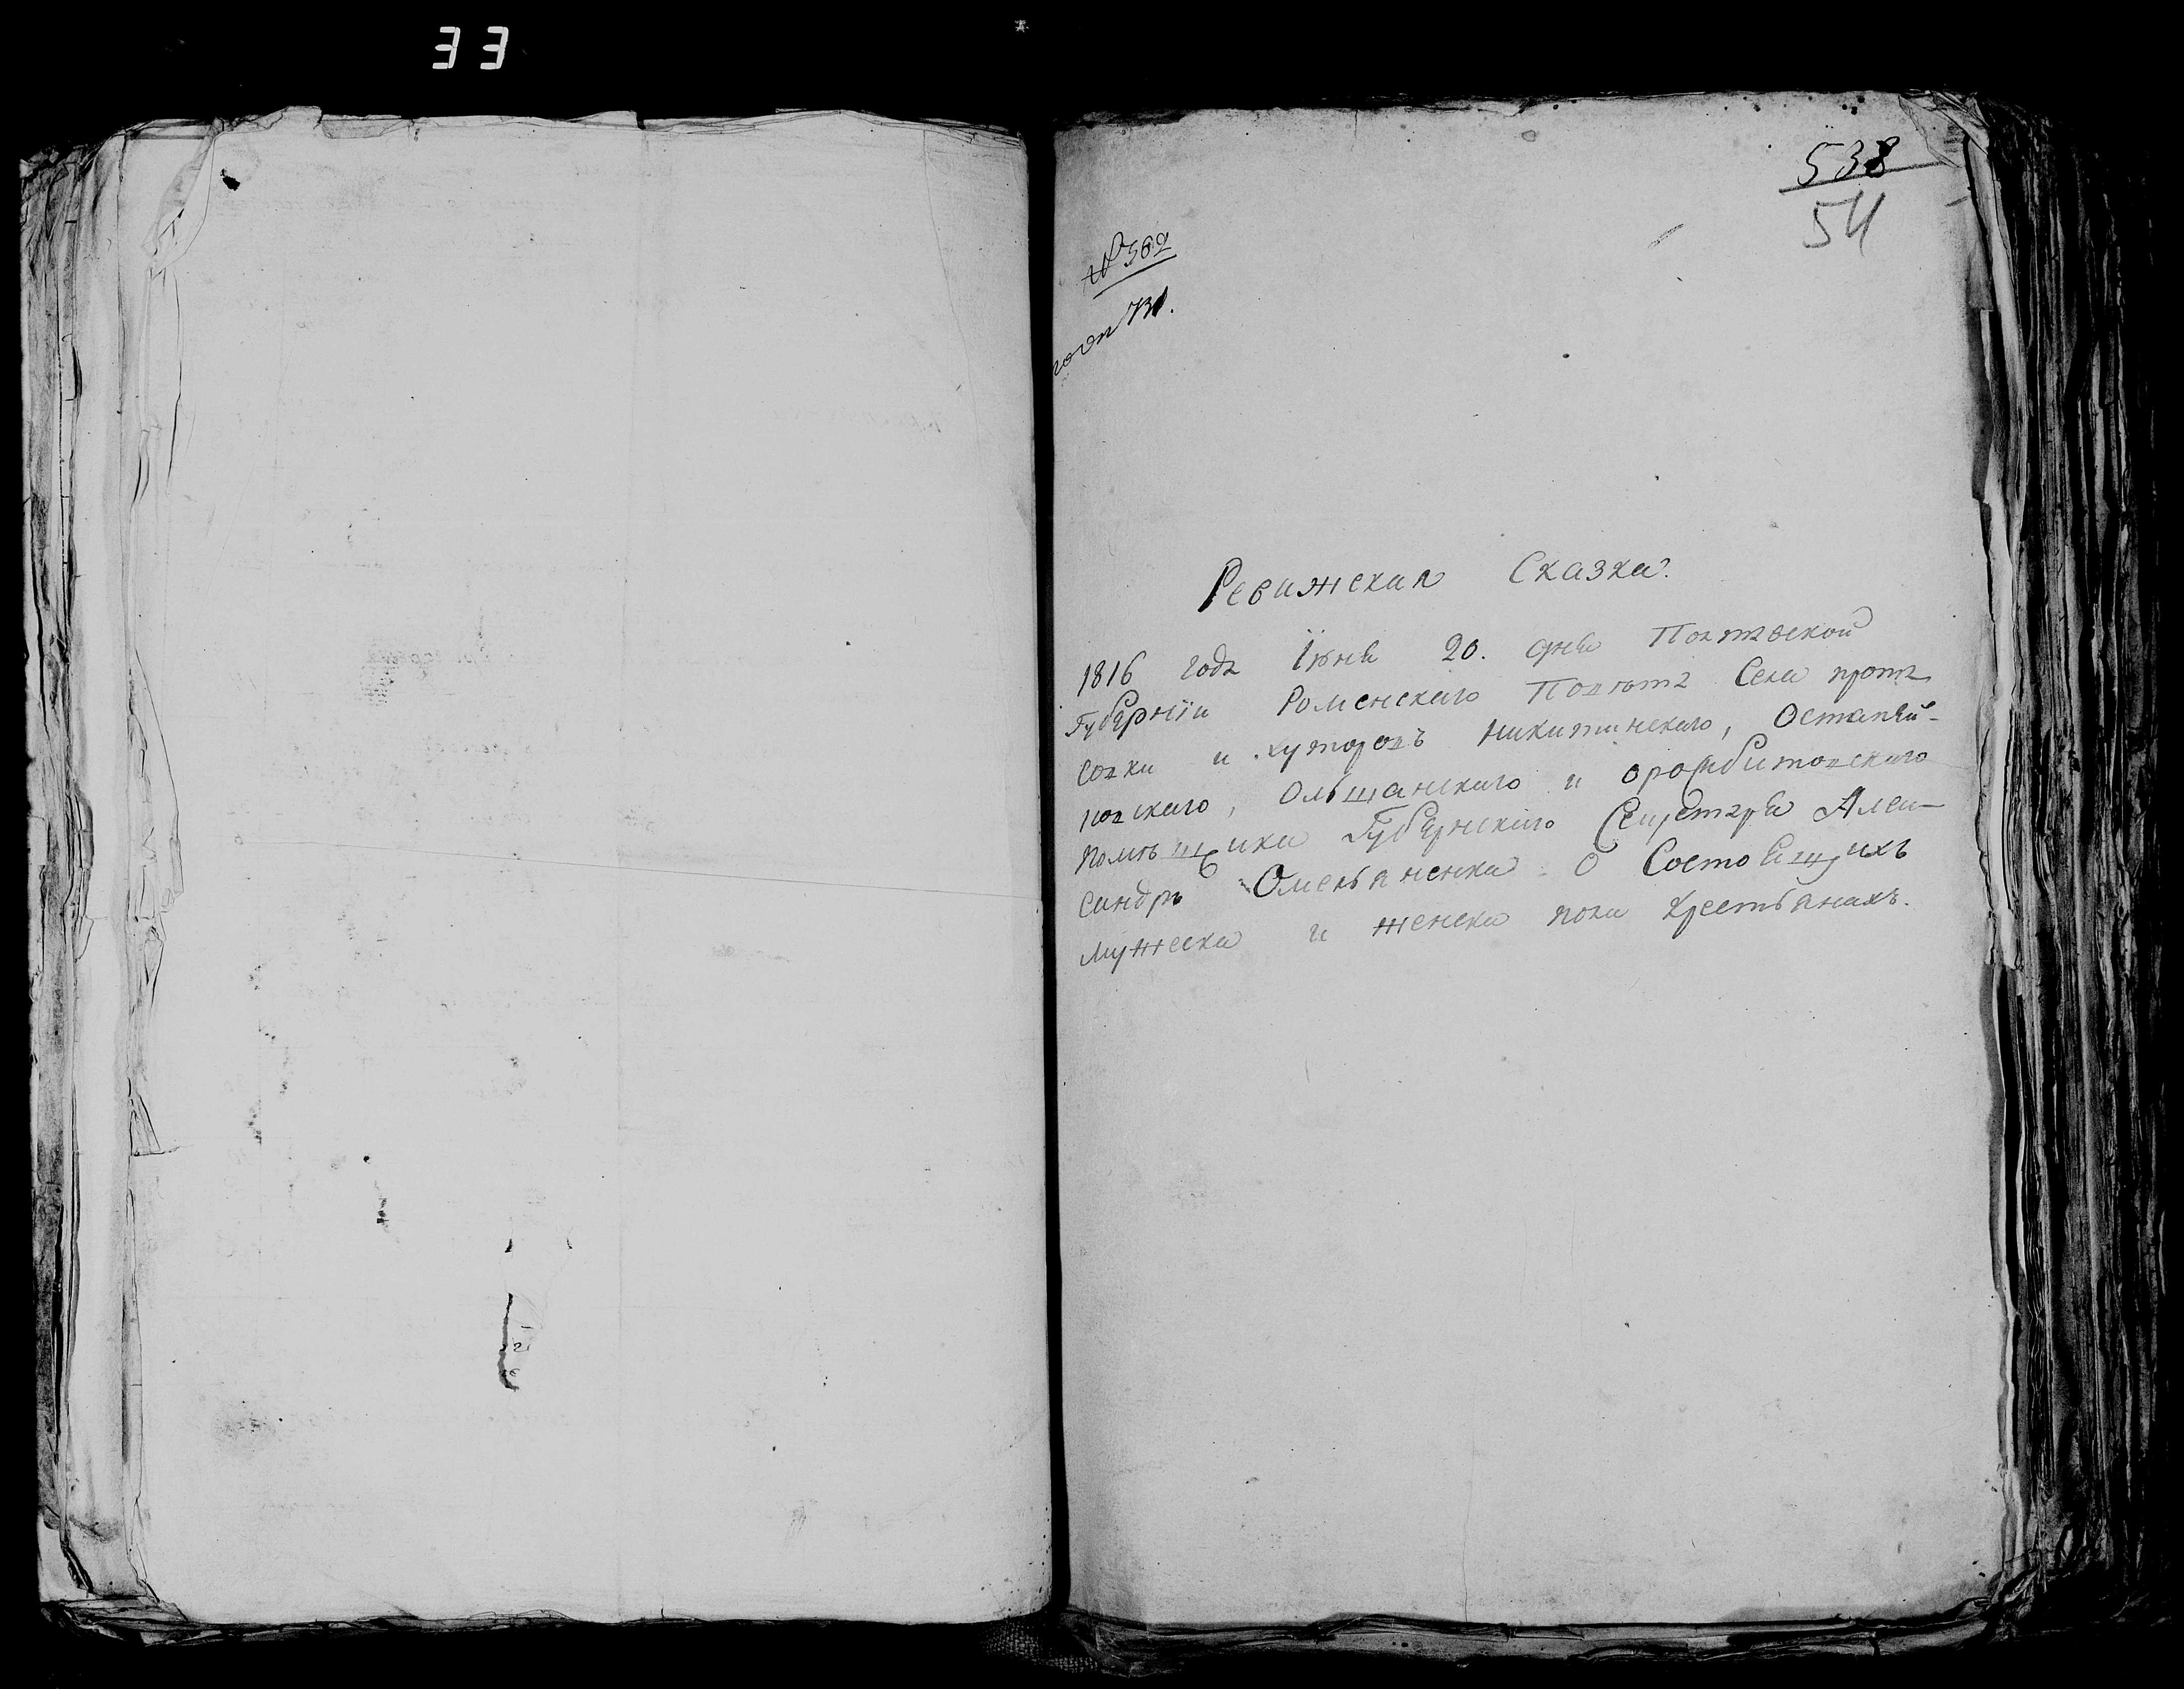 33
538
54
№ 362
731.
Ревижская Сказка.
1816 года Їюня 20. дня Полтавской
Губернїи Роменскаго Повѣта Села прота-
совки и хуторовъ Никитинскаго, Остапей-
повскаго, Ольшанскаго и
помѣщика Губернскаго Секретаря Алек-
сандръ Омельяненка О Состоящихъ
мужеска и женска пола крестьянахъ.